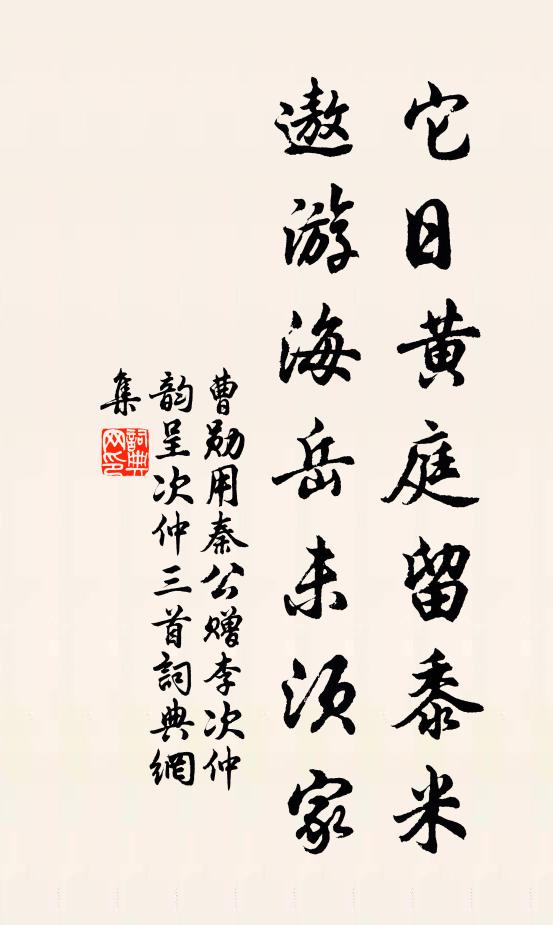 它日黃庭留黍米
遨游海岳未須家
曹勛用秦公贈李次仲
韵呈次仲三首詞典網
集
詞典
网印